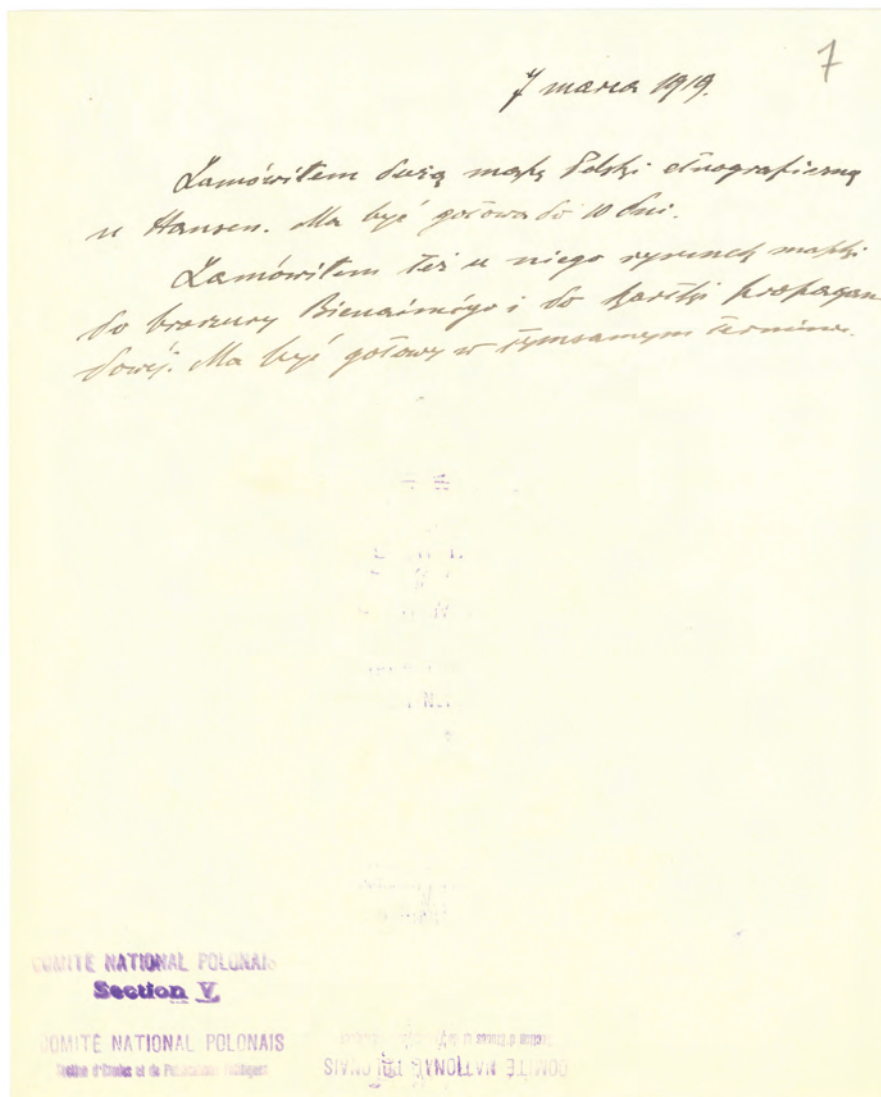 7
7 marca 1919.
Zamówiłem dużą mapę Polski etnograficzną
u Hansen. Ma być gotowa do 10 dni.
Zamówiłem też u niego rysunek mapki
do broszury Bienaimégo i do kartki propagan
dowej. Ma być gotowy w tymsamym terminie.
COMITÉ NATIONAL POLONAIS
Section V
COMITÉ NATIONAL POLONAIS
Section d'Etudes et de Publications Politiques
COMITÉ NATIONAL POLONAIS